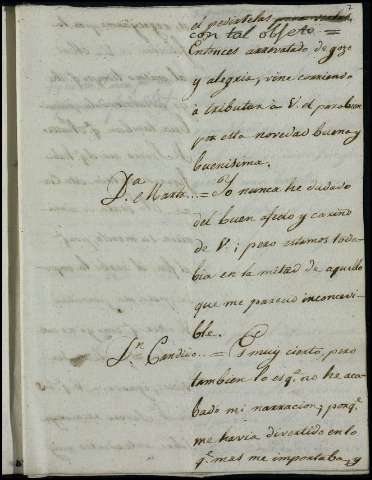 7
el pedirtelas
con tal objeto =
Entonces arrevatado de gozo
y alegria, vine corriendo
à tributar à V. el parabien
por esta novedad buena y
buenisima.
D.a Marta... = Yo nunca he dudado
del buen afecto y cariño
de V.; pero estamos toda-
bia en la mitad de aquello
que me pareció inconcevi-
ble.
D.n Candido... = Es muy cierto, pero
tambien lo es q.e no he aca-
bado mi narracion; porq.e
me havia divertido en lo
q.e mas me importaba, y